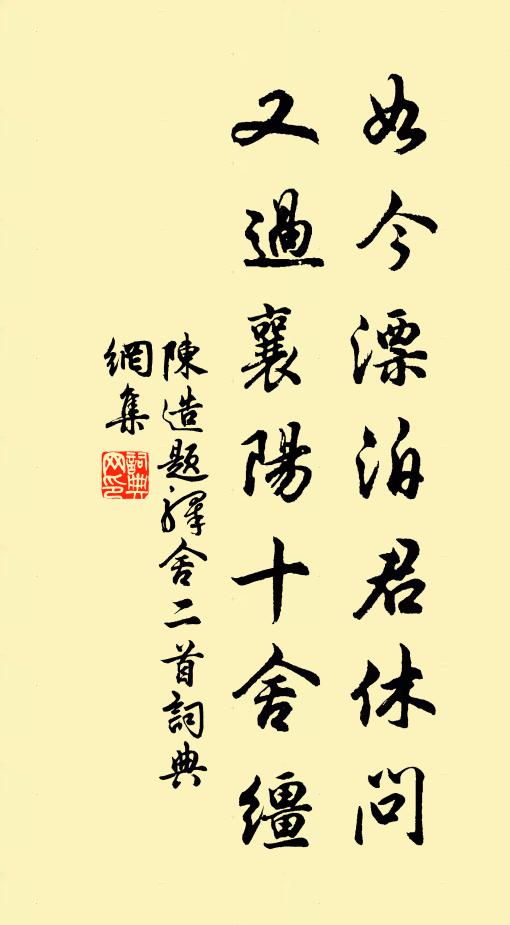 如今漂泊君休問
又過襄陽十舍繮
陳造題驛舍二首詞典
網集
詞典網印